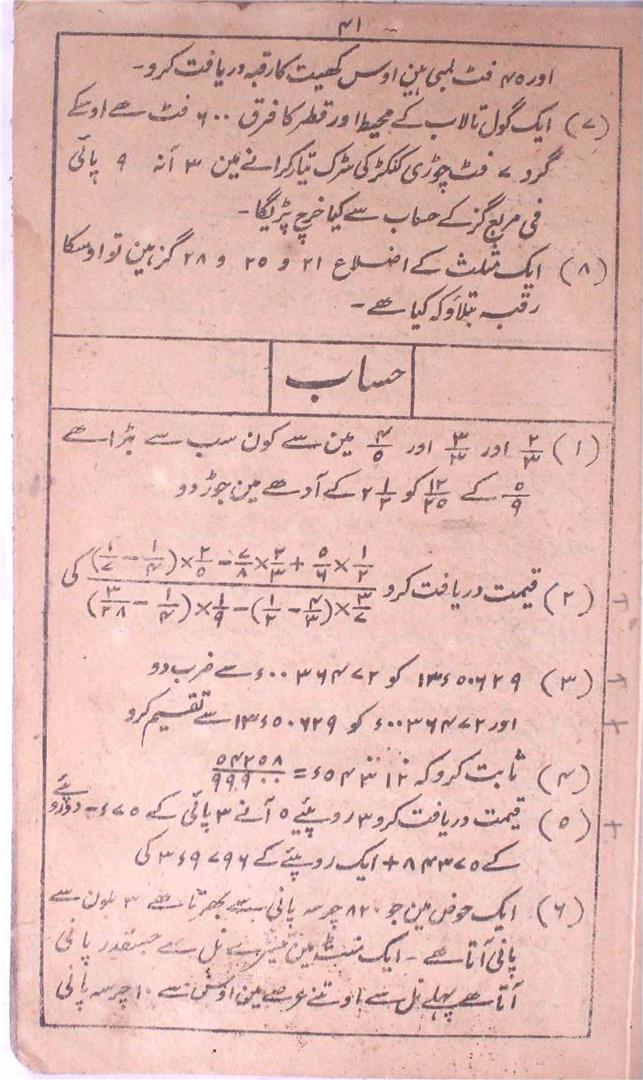 ۴۱
اور ۴۵ فٹ لمبی ہین اوس کھیت کا رقبہ دریافت کرو۔
(۷) ایک گول تالاب کے محیط اور قطر کا فرق ۶۰۰ فٹ ھے اوسکے
گرد ۷ فٹ چوڑی کنکڑ کی سڑک تیار کرانے مین ۳ آنہ ۹ پائی
فی مربع گز کے حساب سے کیا خرچ پڑیگا۔
(۸) ایک مثلث کے اضلاع ۲۱ و ۲۵ و ۲۸ گز ہین تو اوسکا
رقبہ بتلاؤ کہ کیا ھے۔
حساب
(۱) ۲/۳ اور ۳/۴ اور ۴/۵ مین سے کون سب سے بڑا ھے
۵/۹ کے ۱۲/۲۵ کو ۲ ۱/۲ کے آدھے مین جوڑ دو
(۲) قیمت دریافت کرو
کی
(۳) ۱۳ء۵۰۶۲۹ کو ء۰۰۳۶۴۷۲ سے ضرب دو
اور ء۰۰۳۶۴۷۲ کو ۱۳ء۵۰۶۲۹ سے تقسیم کرو
(۴) ثابت کرو کہ = ۵۴۲۵۸/۹۹۹۰۰
(۵) قیمت دریافت کرو ۳ روپئے ۵ آنے ۳ پائی کے ء۶۷۵ -
کے ۸۴۳۷۵ + ایک روپئے کے ۳ء۹۷۹۶ کی
(۶) ایک حوض مین جو ۸۲۰ چرسہ پانی سے بھرتا ھے ۳ نلون سے
پانی آتا ھے - ایک منٹ مین تیسرے نل سے جسقدر پانی
آتا ھے پہلے نل سے اوتنے عرصے مین اوس سے ۱۰ چرسہ پانی